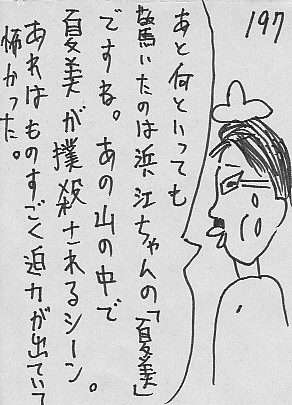 197
あと何といっても
驚いたのは浜江ちゃんの「夏美」
ですね。あの山の中で
夏美が撲殺されるシーン。
あれはものすごく迫力が出ていて
怖かった。